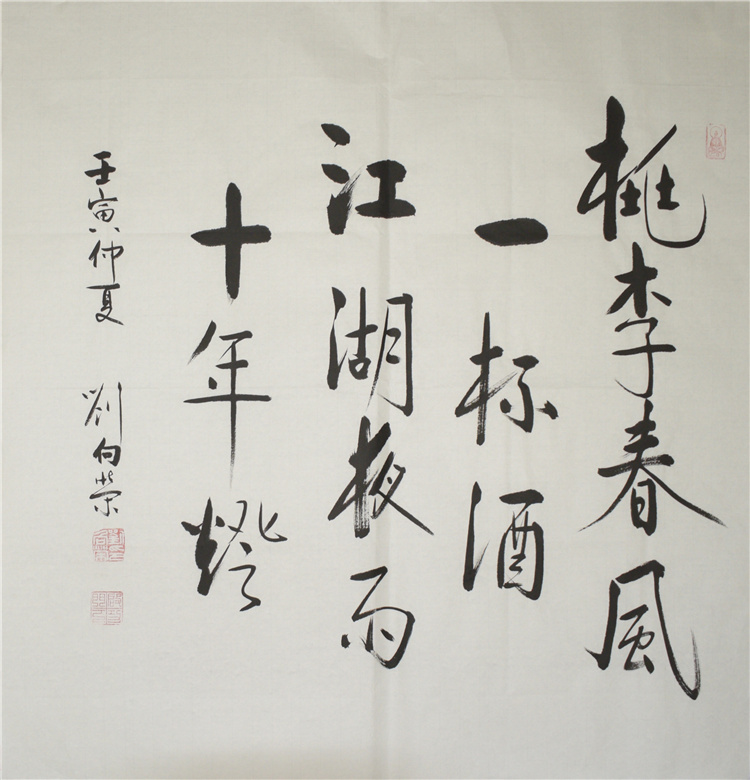 桃李春風
一杯酒
江湖夜雨
十年燈
壬寅仲夏 劉向榮